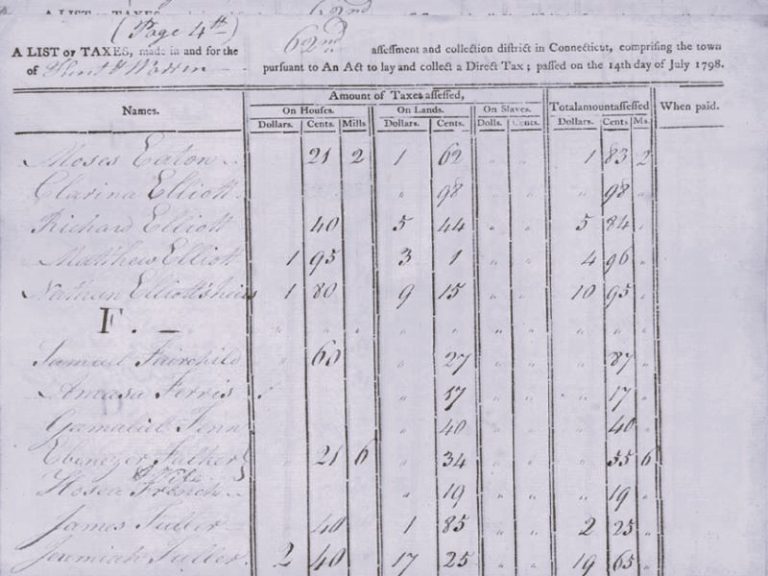 62nd
A LIST OF TAXES,
(Page 4th)
A LIST OF TAXES, made in and for the 62nd assessment and collection district in Connecticut, comprising the town
of Kent & Warren pursuant to An Act to lay and collect a Direct Tax; passed on the 14th day of July 1798.
Names. Amount of Taxes assessed, Total amount assessed When paid.
On Houses. On Lands. On Slaves.
Dollars. Cents. Mills Dollars. Cents. Dolls. Cents. Dollars. Cents Ms.
Moses Eaton 21 2 1 62 1 83 2
Clarina Elliott " 98 " 98
Richard Elliott 40 5 44 " " 5 84
Matthew Elliott 1 95 3 1 " " 4 96
Nathan Elliott heirs 1 80 9 15 " " 10 95
F. —
Samuel Fairchild 60 " 27 " " " 87
Amasa Ferris " 17 " " " 17
Gamaliel Fenn " 40 " " " 40
Ebenezer 21 6 " 34 " " " 55 6
Hosea French " 19 " " " 19
James Fuller 40 1 85 " " 2 25
Jeremiah Fuller 2 40 17 25 " " 19 65